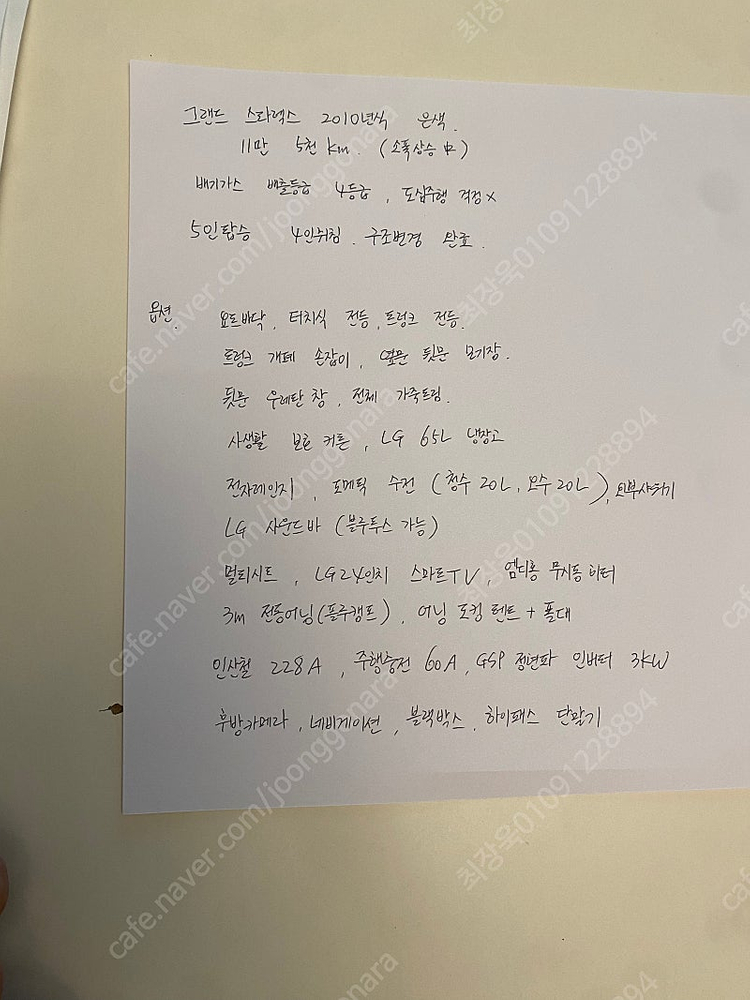 그랜드 스타렉스 2010년식 은색.
11만 5천 km. (소폭상승 中)
배기가스 배출등급 4등급, 도심주행 걱정 x
5인탑승 4인취침. 구조변경 완료.
옵션. 요트바닥. 터치식 전등, 트렁크 전등.
트렁크 개폐 손잡이, 옆문 뒷문 모기장.
뒷문 우레탄 창, 전체 가죽트림.
사생활 보호 커튼, LG 65L 냉장고
전자레인지, 도메틱 수전 (청수 20L, 오수 20L), 외부샤워기
LG 사운드바 (블루투스 가능)
멀티시트, LG 24인치 스마트TV, 엠디홍 무시동 히터
3m 전동어닝(플루캠프), 어닝 도킹 텐트 + 폴대
인산철 228A, 주행충전 60A, GSP 정현파 인버터 3KW
후방카메라, 네비게이션, 블랙박스. 하이패스 단말기
cafe.naver.com/joonggonara
최장욱01091228894